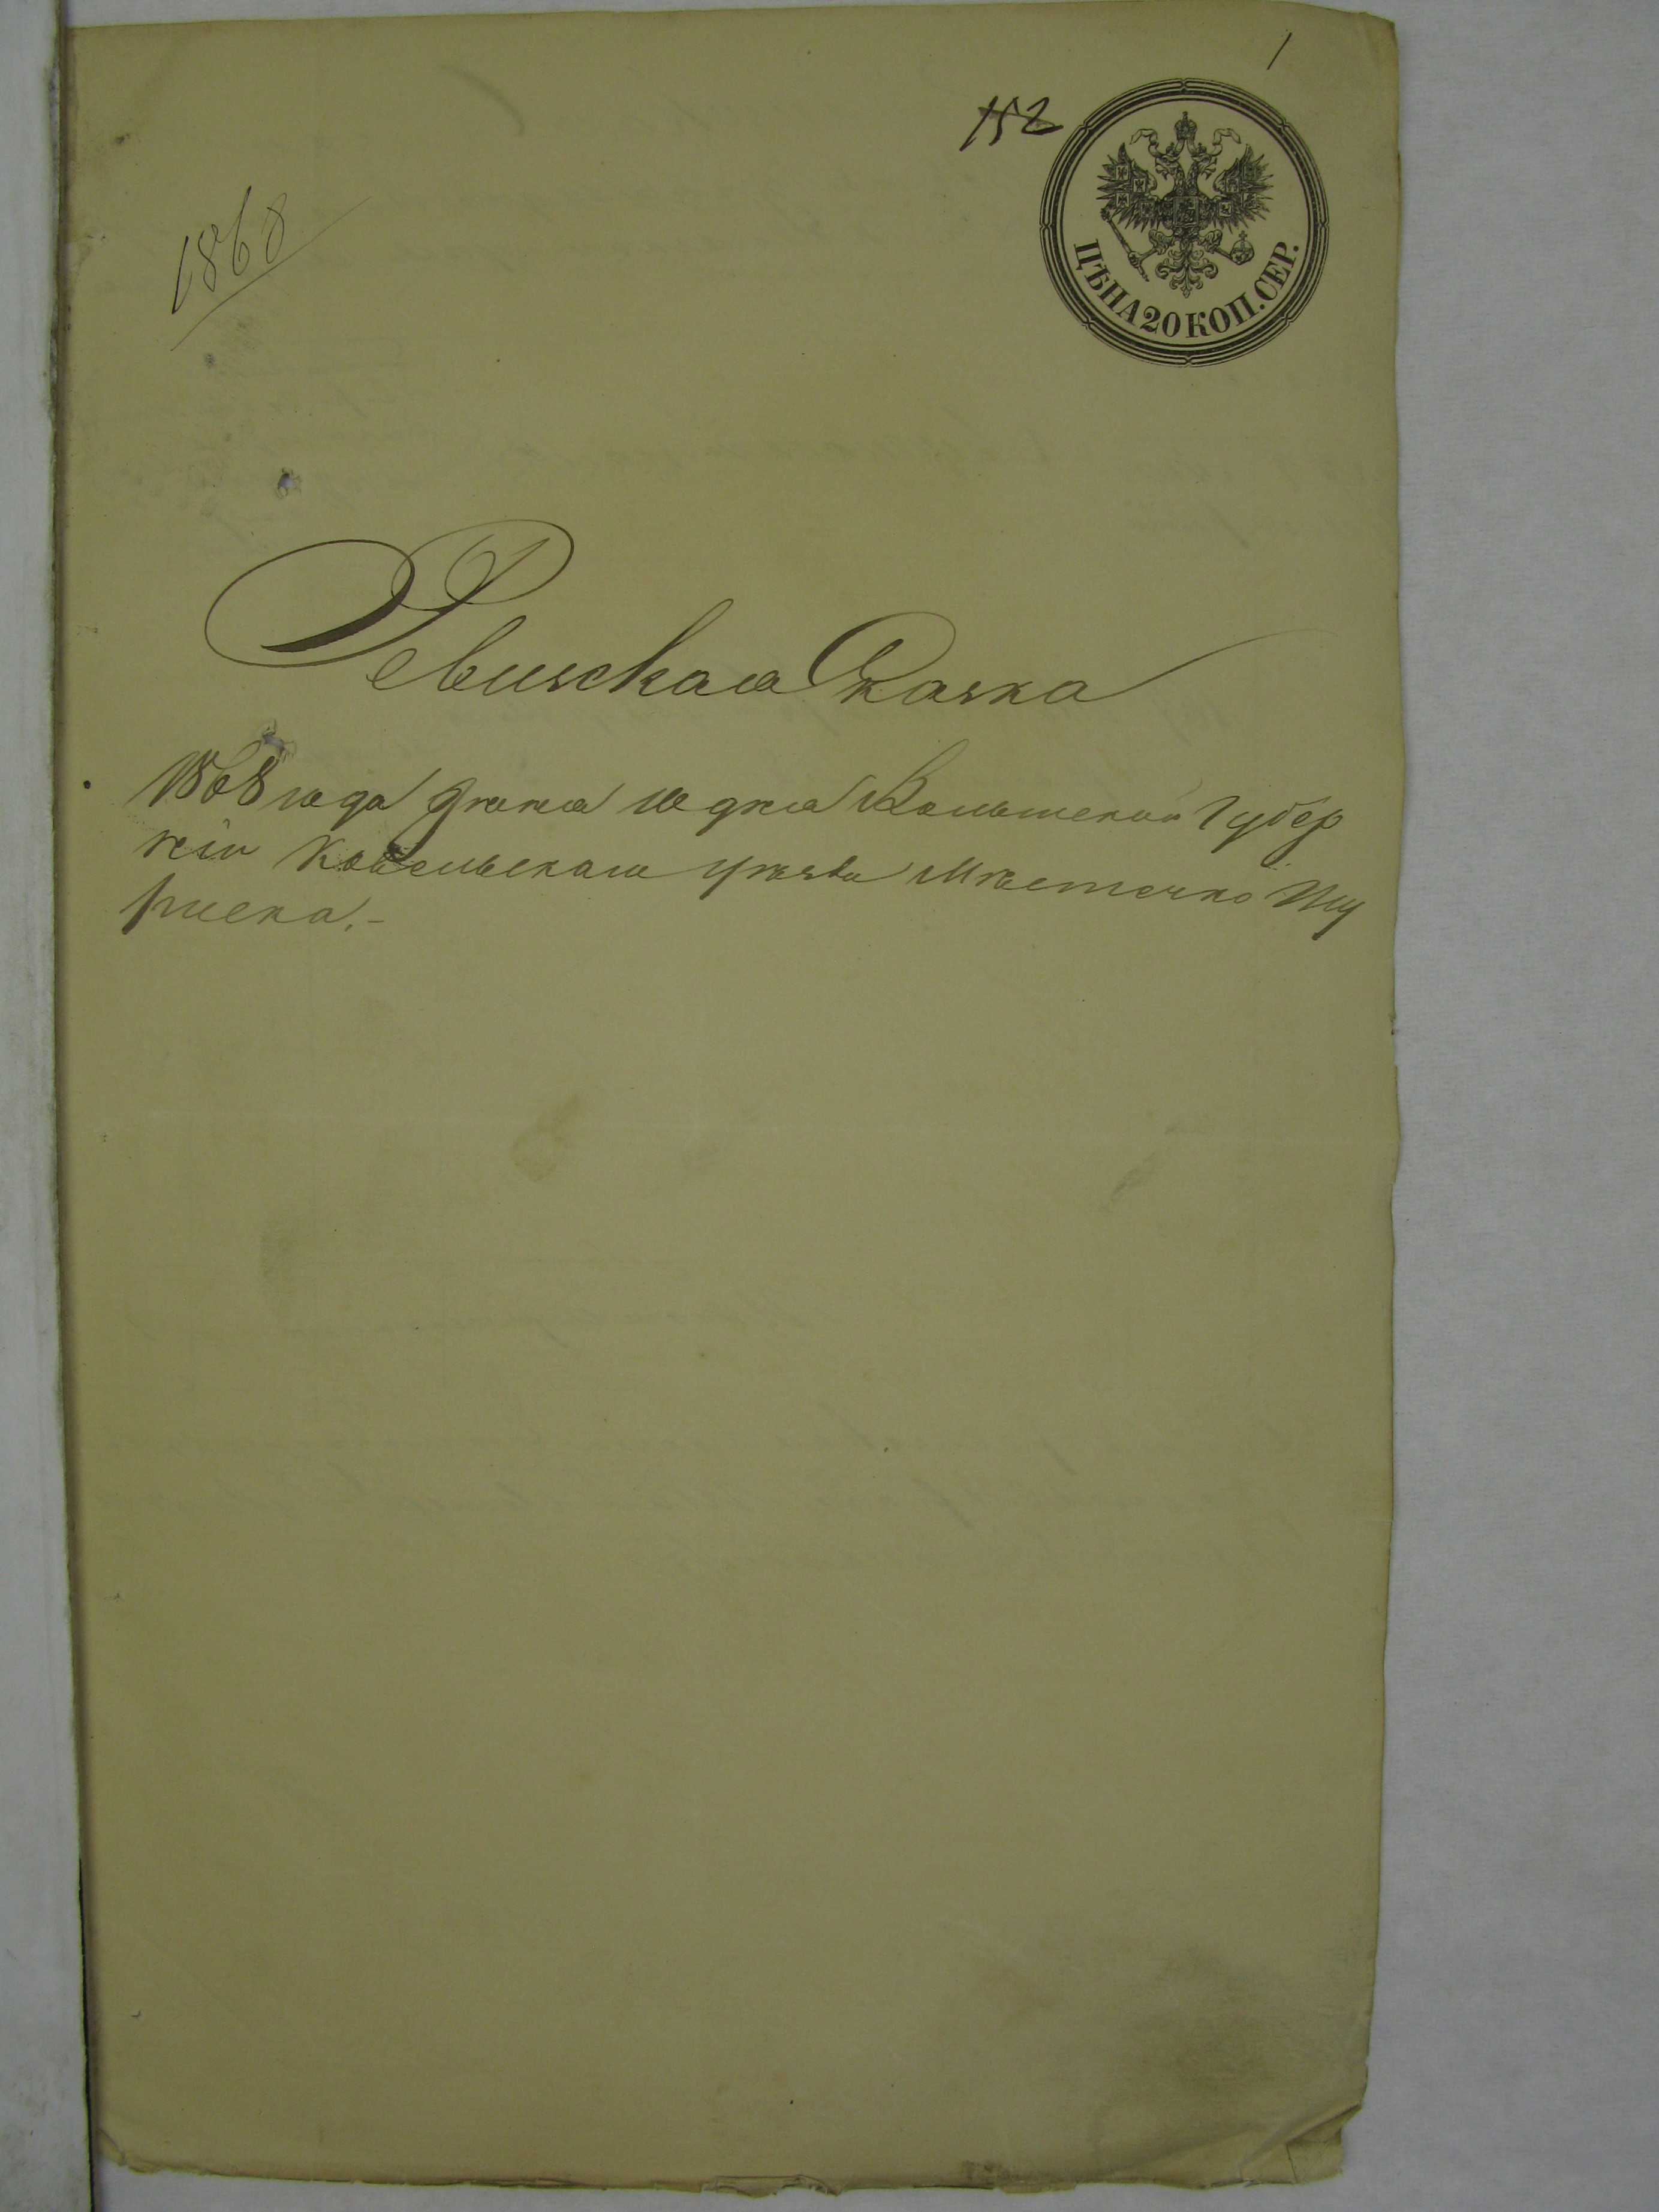 1
152
ЦѢНА 20 КОП. СЕР.
1868
Ревизская Сказка
1868 года дня Волынской Губер
нiи Ковельскаго уѣзда Мѣстечко Ту
риска.-